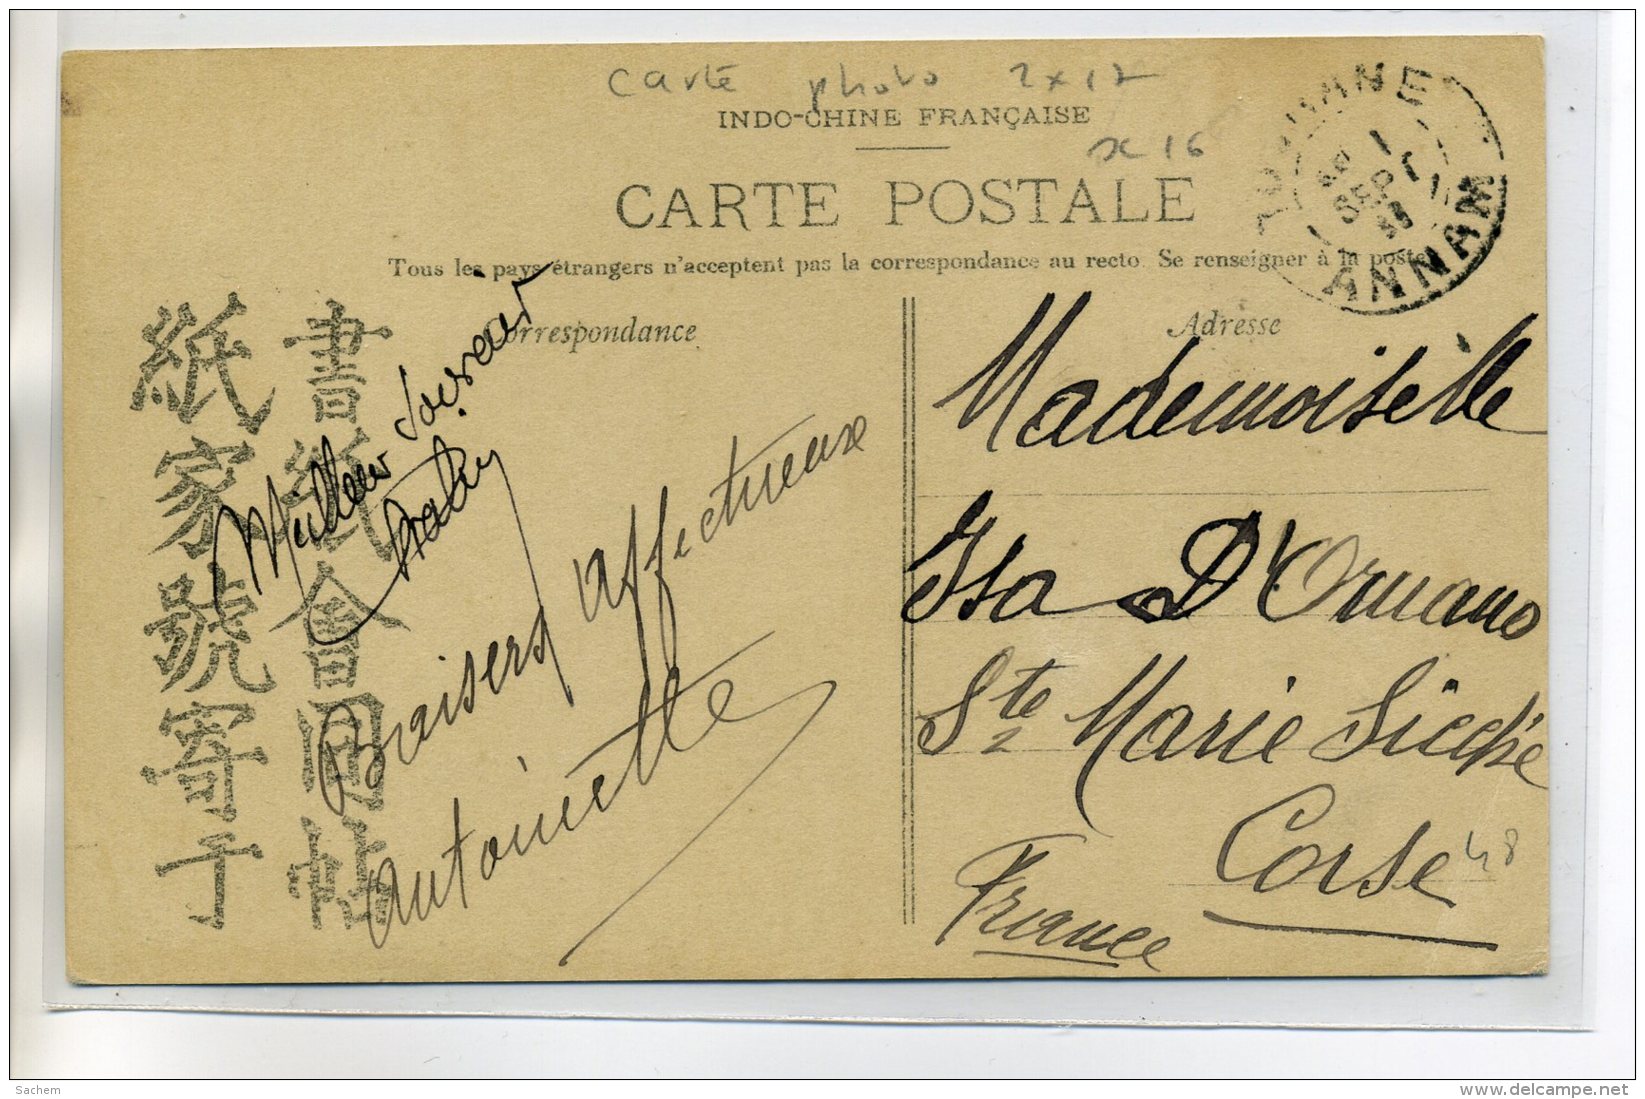 carte photo 2x17
x 16
INDO-CHINE FRANÇAISE
CARTE POSTALE
Tous les pays étrangers n'acceptent pas la correspondance au recto. Se renseigner à la poste
Correspondance
Adresse
ANNAM
SEPT
書紙會同帖
紙家號寄于
Baisers affectueux
Antoinette
Mademoiselle
Isa D'Ornano
Ste Marie Sicché
Corse
France
48
Sachem
delcampe.net